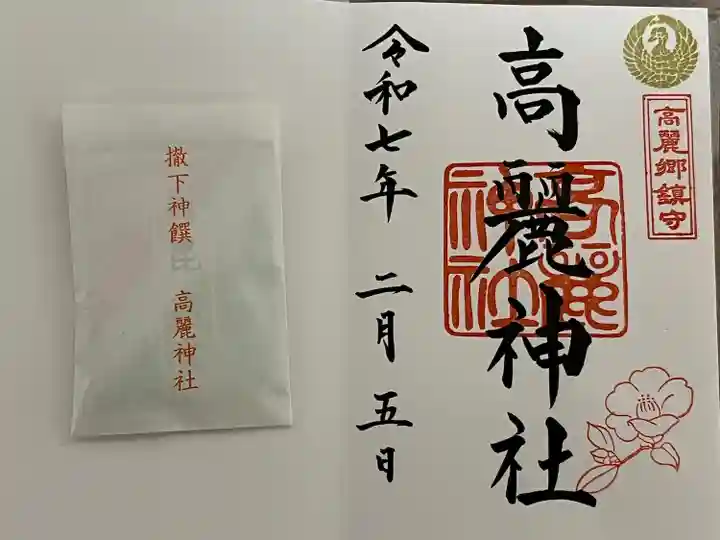 高麗郷鎮守
高麗神社
高麗神社
令和七年 二月 五日
撤下神饌
高麗神社